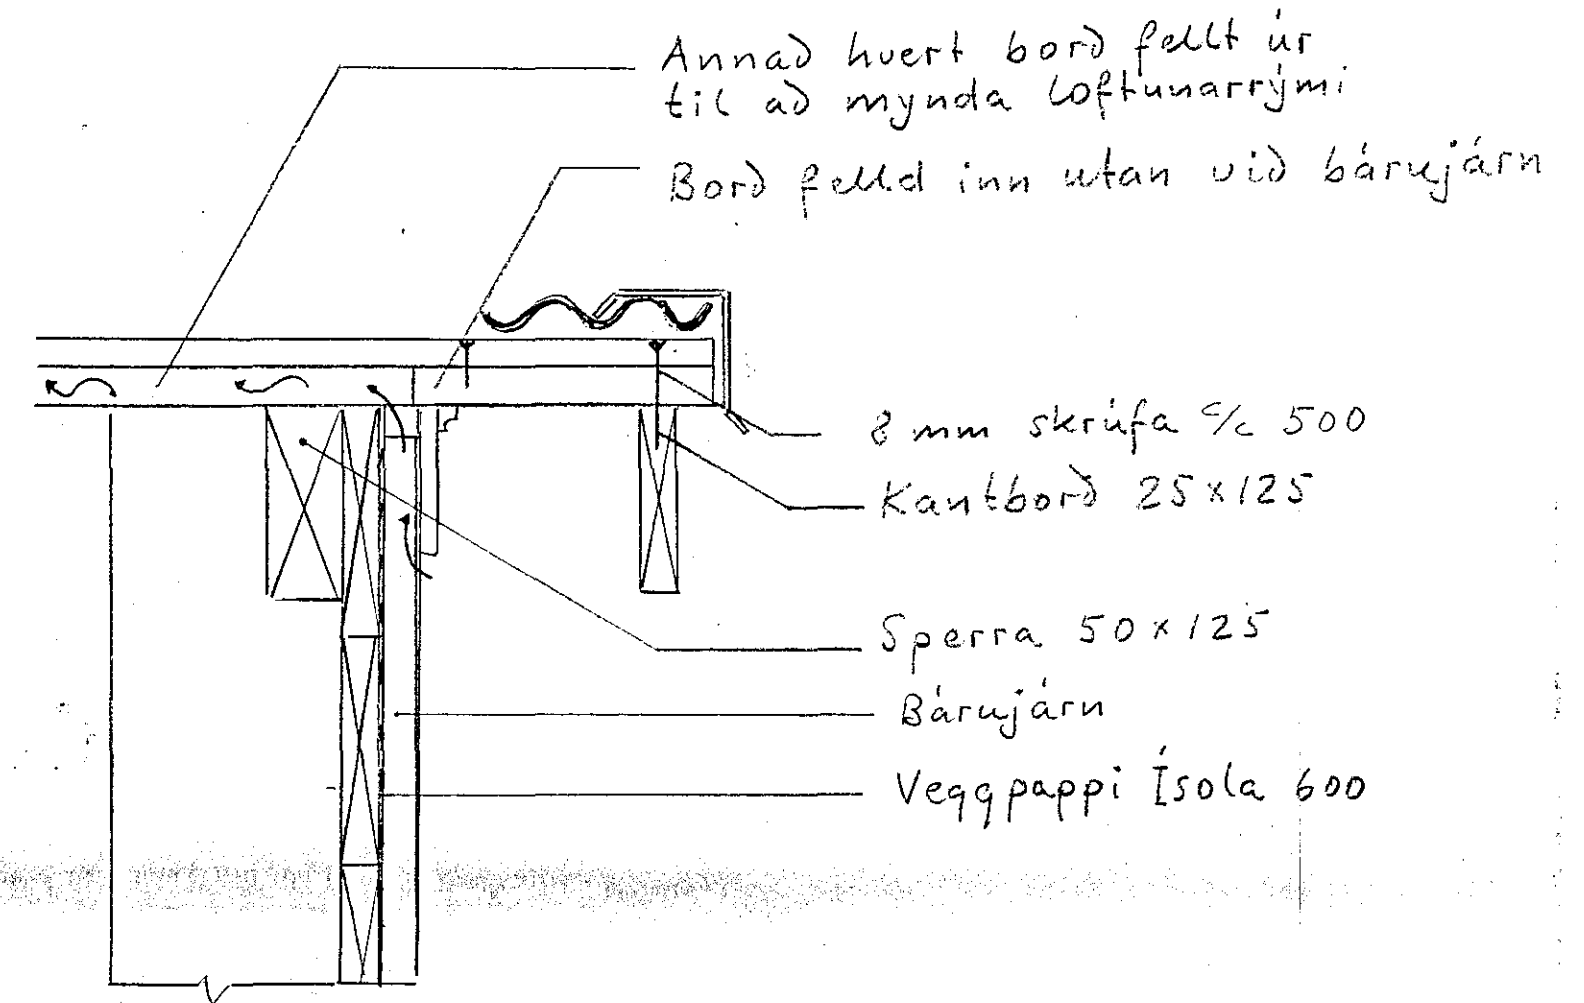 Annað hvert borð fellt úr
til að mynda loftunarrými
Borð felld inn utan við bárujárn
8 mm skrúfa c/c 500
Kantborð 25x125
Sperra 50x125
Bárujárn
Veggpappi Ísola 600